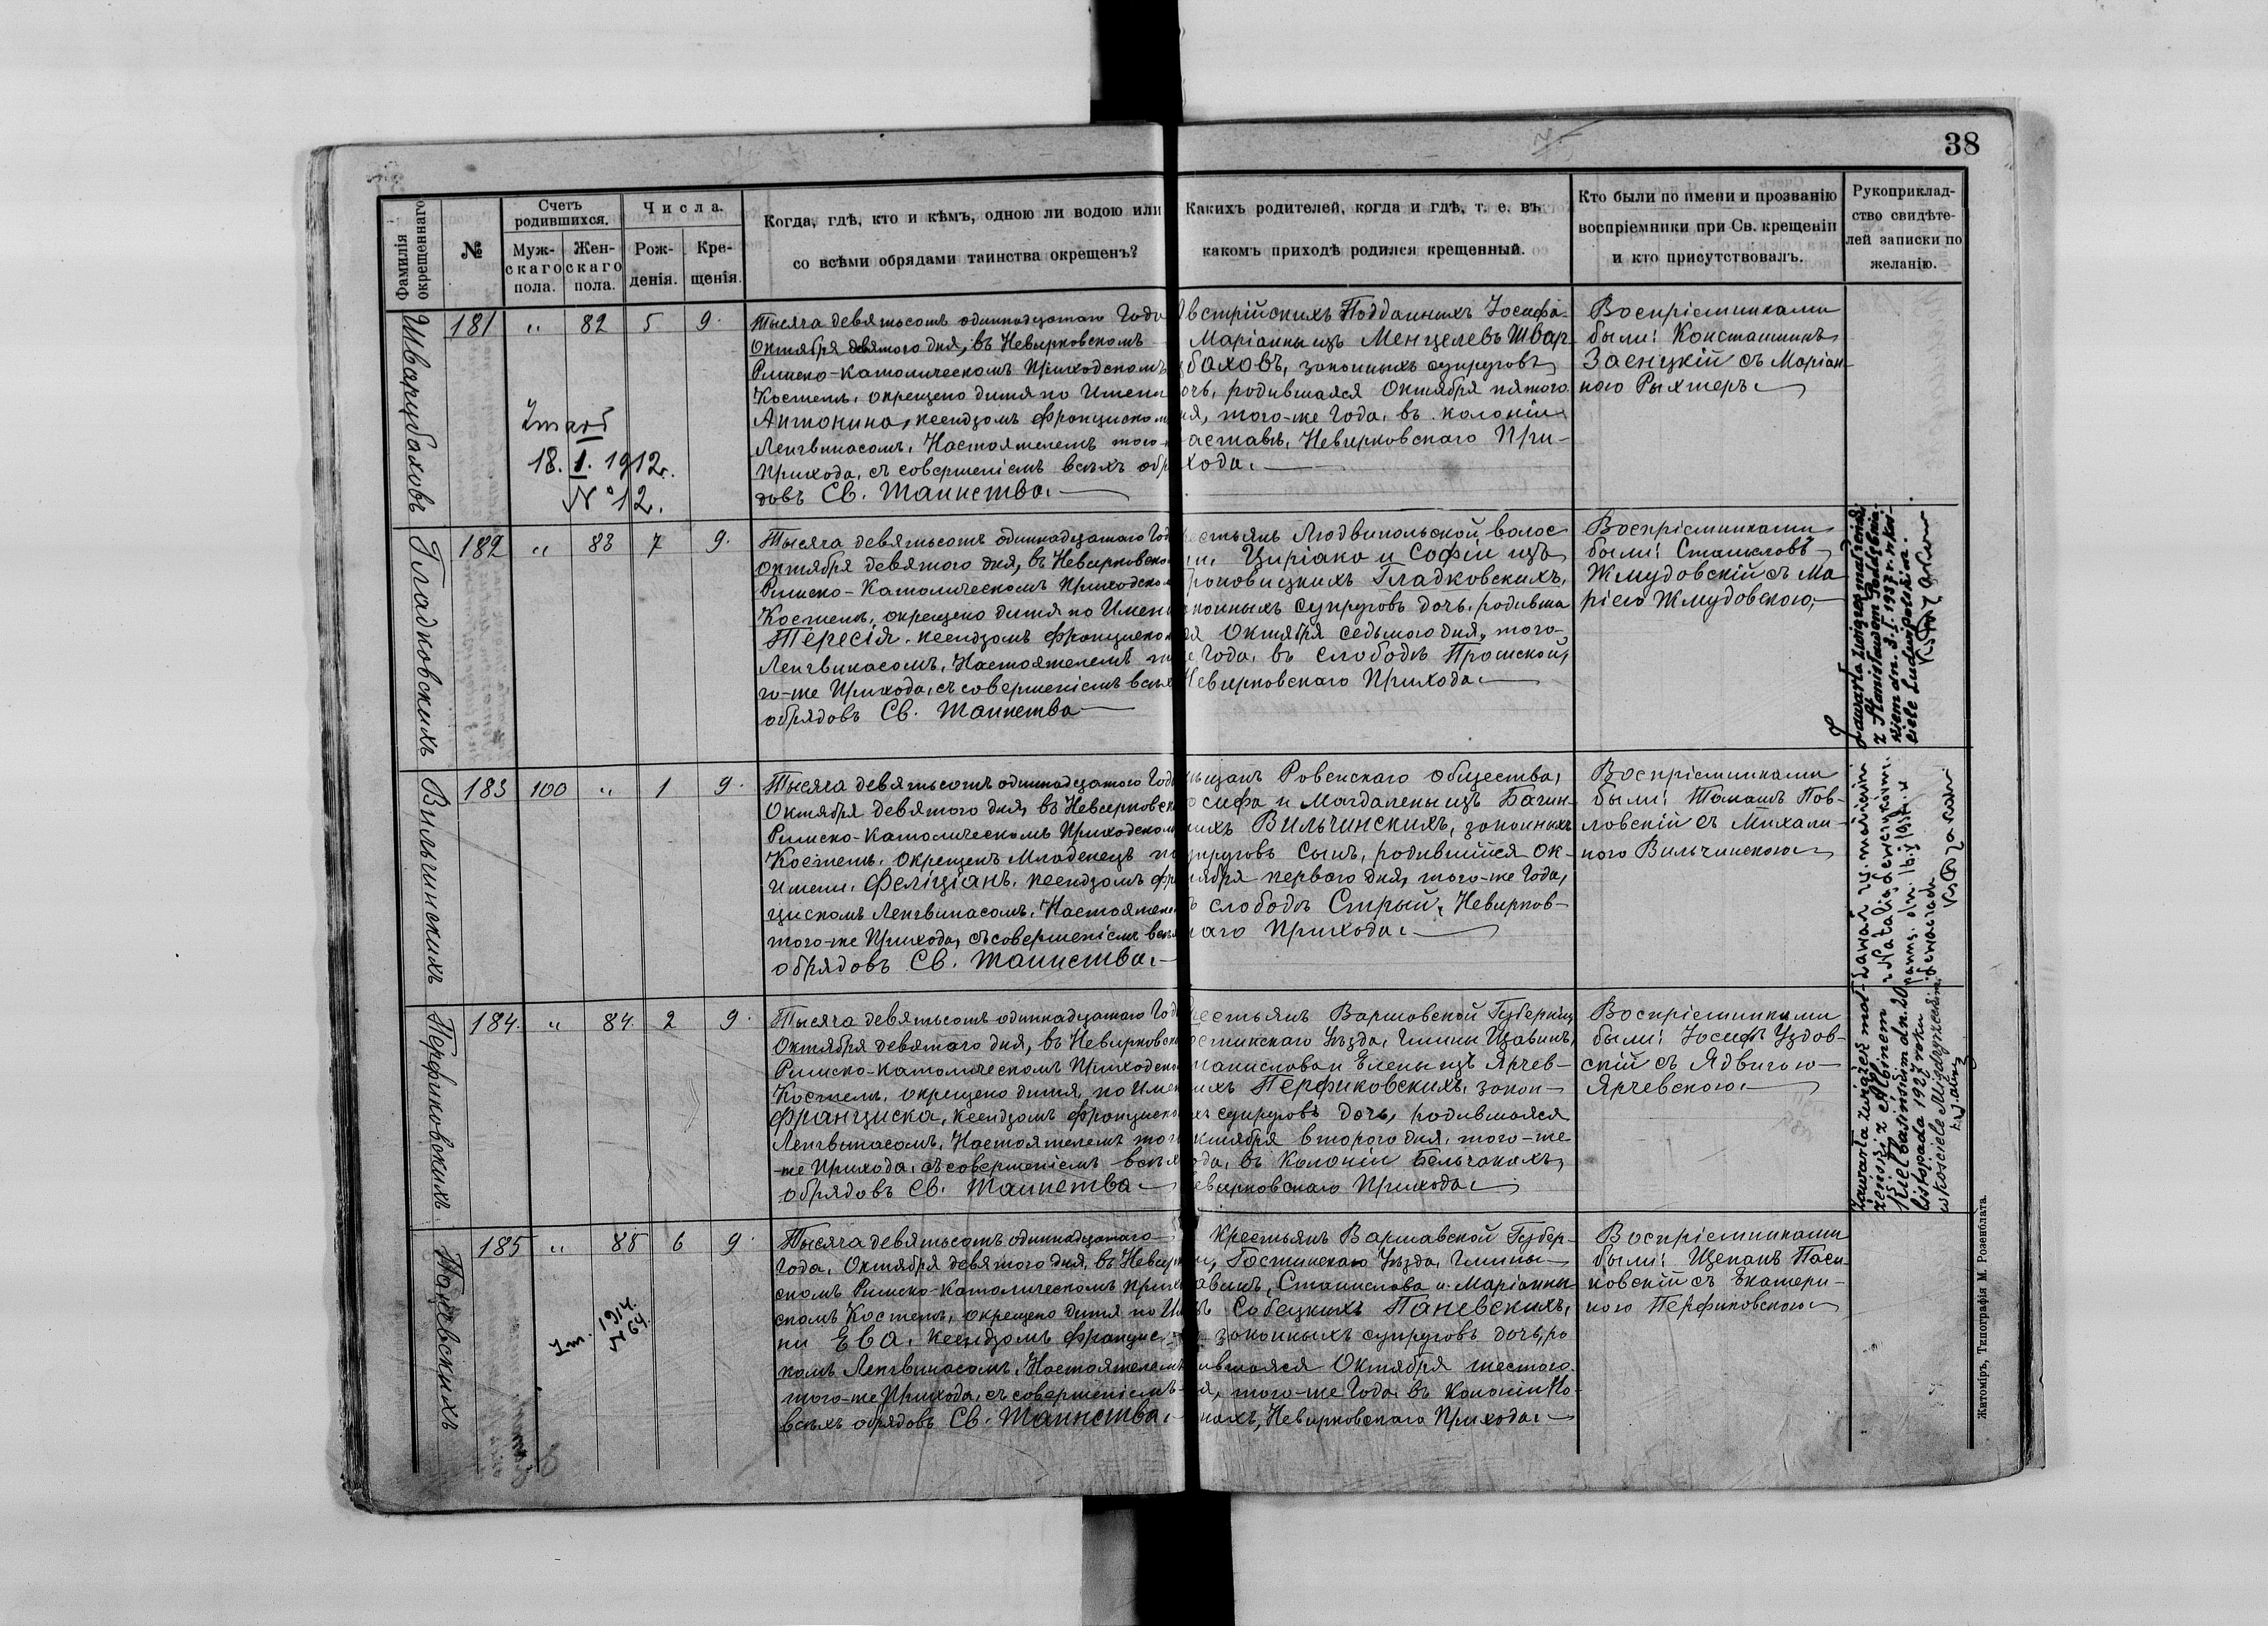 38
Фамилія окрещеннаго
№
Счетъ родившихся.
Муж-скаго пола.
Жен-скаго пола.
Числа.
Рож-денія.
Кре-щенія.
Когда, гдѣ, кто и кѣмъ, одною ли водою или
со всѣми обрядами таинства окрещенъ?
Какихъ родителей, когда и гдѣ, т. е. въ
какомъ приходѣ родился крещенный.
Кто были по имени и прозванію
воспріемники при Св. крещеніи
и кто присутствовалъ.
Рукоприклад-
ство свидѣте-
лей записки по
желанію.
Шварцбаховъ
181 " 82 5 9.
Zmarł
18. I. 1912 r.
№ 12.
Тысяча девятьсотъ одиннадцатаго Года
Октября девятого дня, въ Невирковскомъ
Римско-Католическомъ Приходскомъ
Костелѣ, окрещено дитя по Имени
Антонина, ксендзомъ Францискомъ
Ленгвинасомъ, Настоятелемъ того-
Прихода, съ совершеніемъ всѣхъ обр
довъ Св. Таинства.
Австрійскихъ Подданныхъ Іосифа
Маріанны изъ Менцелевъ Швар
баховъ, законныхъ супруговъ
очь, родившаяся Октября пятого
ня, того-же Года, въ колоніи
аставѣ, Невирковскаго При-
хода.
Воспріемниками
были: Константинъ
Заенцкій съ Маріан-
ною Рыхтеръ
Гладковскихъ
182 " 83 7 9.
Тысяча девятьсотъ одиннадцатаго Год
Октября девятого дня, въ Невирковско
Римско-Католическомъ Приходском
Костелѣ, окрещено дитя по Имени
Тересія, ксендзомъ Францискo
Ленгвинасомъ, Настоятелемъ т
го-же Прихода, съ совершеніемъ всѣх
обрядовъ Св. Таинства
естьянъ Людвипольской волос
и, Циріака и Софіи изъ
роковицкихъ Гладковскихъ,
конныхъ супруговъ дочь, родивша
ся Октября седьмого дня, того-
Года, въ слободѣ Прошской,
Невирковскаго Прихода
Воспріемниками
были: Станиславъ
Жмудовскій съ Ма
ріею Жмудовскою,
Zawarła związek małżeński
z Stanisławem Podlębnia-
kiem dn. 3. I. 1937 r. w koś-
ciele Ludwipolskim.
Вильчинскихъ
183 100 " 1 9.
Тысяча девятьсотъ одиннадцатаго Год
Октября девятого дня, въ Невирковск
Римско-Католическомъ Приходском
Костелѣ, окрещенъ Младенецъ по
Имени, Феліціанъ, ксендзомъ Фр
цискомъ Ленгвинасомъ, Настоятеле
того-же Прихода, съ совершеніемъ всѣх
обрядовъ Св. Таинства.
ѣщанъ Ровенскаго общества,
осифа и Магдалены изъ Багин-
кихъ Вильчинскихъ, законныхъ
упруговъ Сынъ, родившійся Ок-
тября перваго дня, того-же Года,
ъ слободѣ Стрый, Невирков-
каго Прихода.
Воспріемниками
были: Томашъ Пав-
ловскій съ Михали-
ною Вильчинскою
Перфиковскихъ
184. " 84. 2 9.
Тысяча девятьсотъ одиннадцатаго Год
Октября девятаго дня, въ Невирковск
Римско-Католическомъ Приходско
Костелѣ, окрещено дитя, по Имен
Франциска, ксендзомъ Франциско
Ленгвинасомъ, Настоятелемъ то
-же Прихода, съ совершеніемъ всѣх
обрядовъ Св. Таинства
естьянъ Варшавской Губерніи
остинскаго Уѣзда, Гмины Щавинъ,
танислава и Елены изъ Ярчев-
кихъ Перфиковскихъ, закон-
хъ супруговъ дочь, родившаяся
ктября второго дня, того-же
ода, въ Колоніи Бельчакахъ,
евирковскаго Прихода
Воспріемниками
были: Іосифъ Уздов-
скій съ Ядвигою
Ярчевскою.
Zawarła związek mał-
żeński z Albinem
Kiełbasińskim dn. 20
listopada 1927 roku
w kościele Międzyrzeckim
Паневскихъ
185 " 85 6 9.
Zm. 1914.
№ 64.
Тысяча девятьсотъ одиннадцатаго
Года, Октября девятаго дня, въ Невирк
скомъ Римско-Католическомъ Прих
скомъ Костелѣ, окрещено дитя по И
ни Ева, ксендзомъ Францис-
комъ Ленгвинасомъ, Настоятелем
того-же Прихода, съ совершеніемъ
всѣхъ обрядовъ Св. Таинства.
Крестьянъ Варшавской Губер-
и, Гостинскаго Уѣзда, Гмины
авинъ, Станислава и Маріанны
зъ Собецкихъ Паневскихъ,
законныхъ супруговъ дочь, ро
ившаяся Октября шестого
я, того-же Года въ Колоніи Но-
кахъ, Невирковскаго Прихода.
Воспріемниками
были: Щепанъ Паси
ковскій съ Екатери-
ною Перфиковскою
Житоміръ, Типографія М. Розенблата.